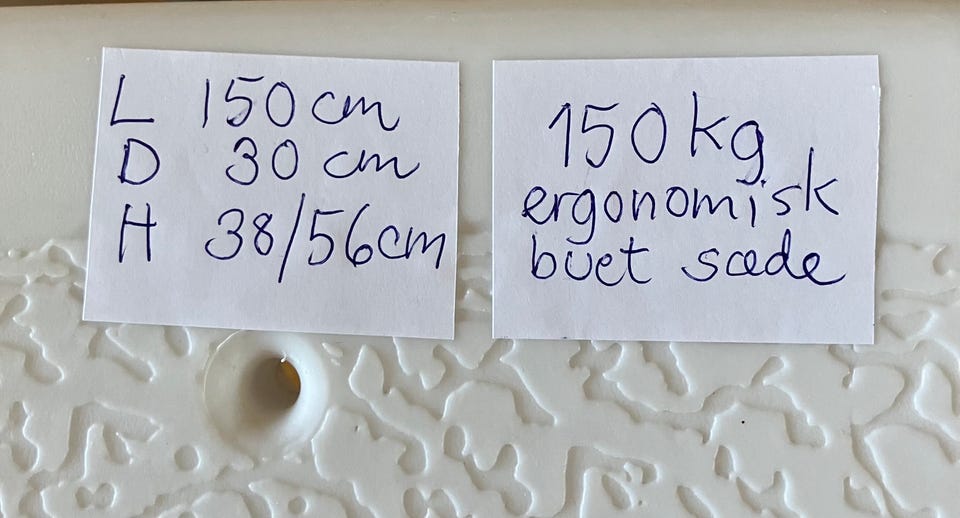 L 150 cm
D 30 cm
H 38/56 cm
150 kg
ergonomisk
buet sæde